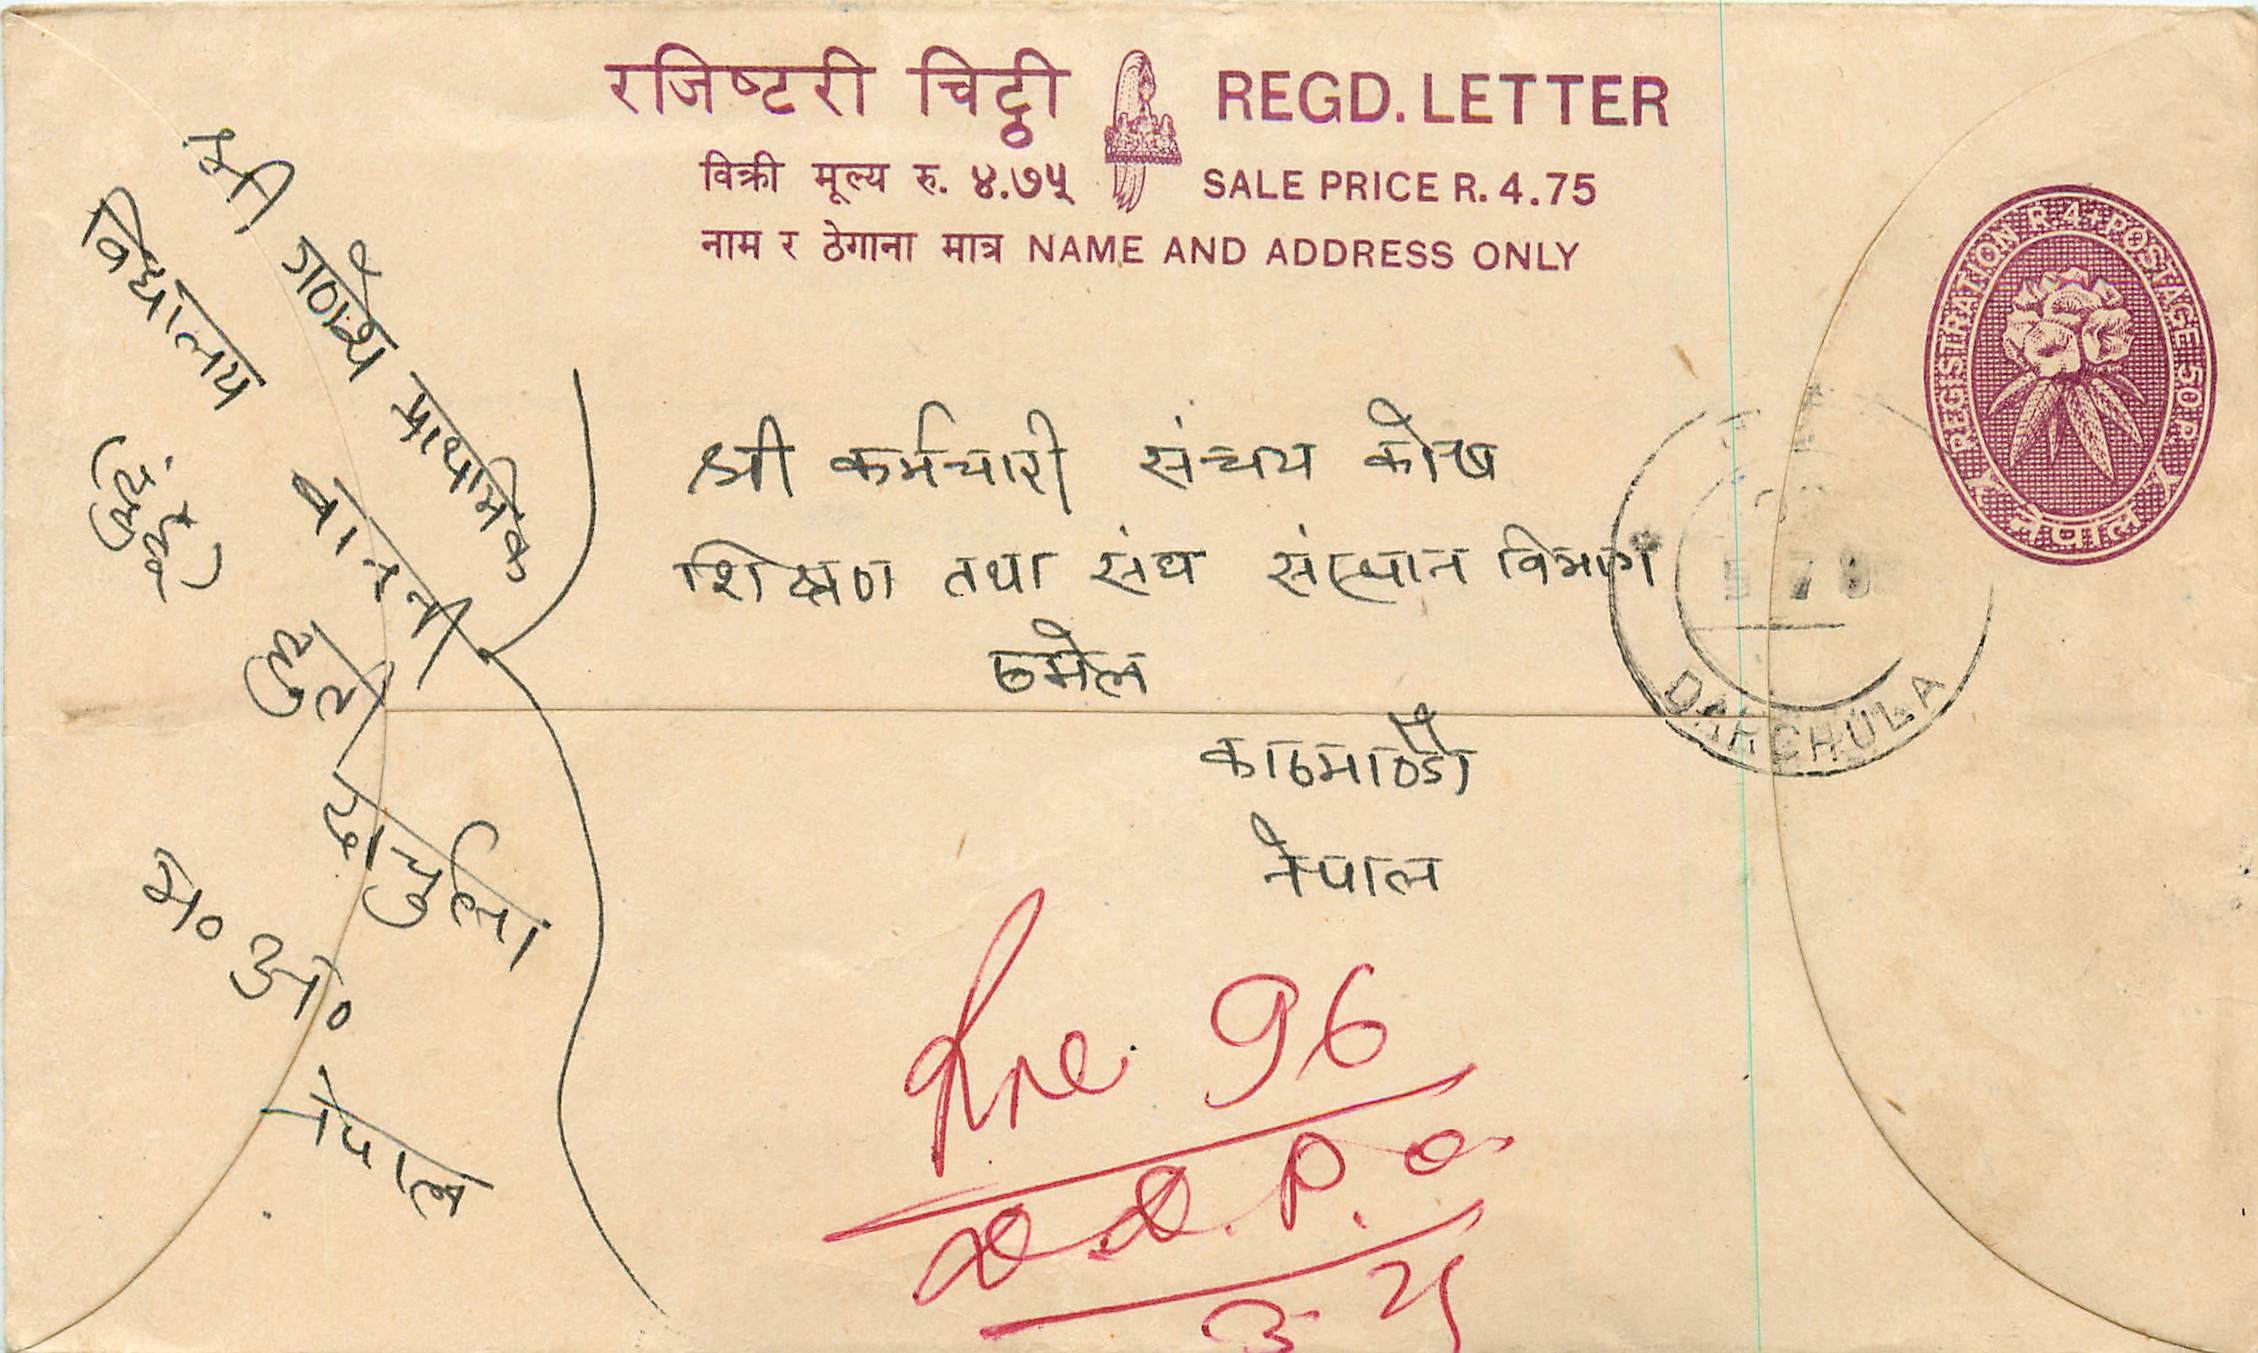 रजिष्टरी चिट्ठी REGD. LETTER
विक्री मूल्य रु. ४.७५ SALE PRICE R. 4.75
नाम र ठेगाना मात्र NAME AND ADDRESS ONLY
REGISTRATION R.4+POSTAGE 50P.
नेपाल
श्री गणेश प्राथमिक
विद्यालय
हुती
दार्चुला
म० अ०
नेपाल
श्री कर्मचारी संचय कोष
शिक्षण तथा संघ संस्थान विभाग
ठमेल
काठमाण्डौ
नेपाल
DARCHULA
96